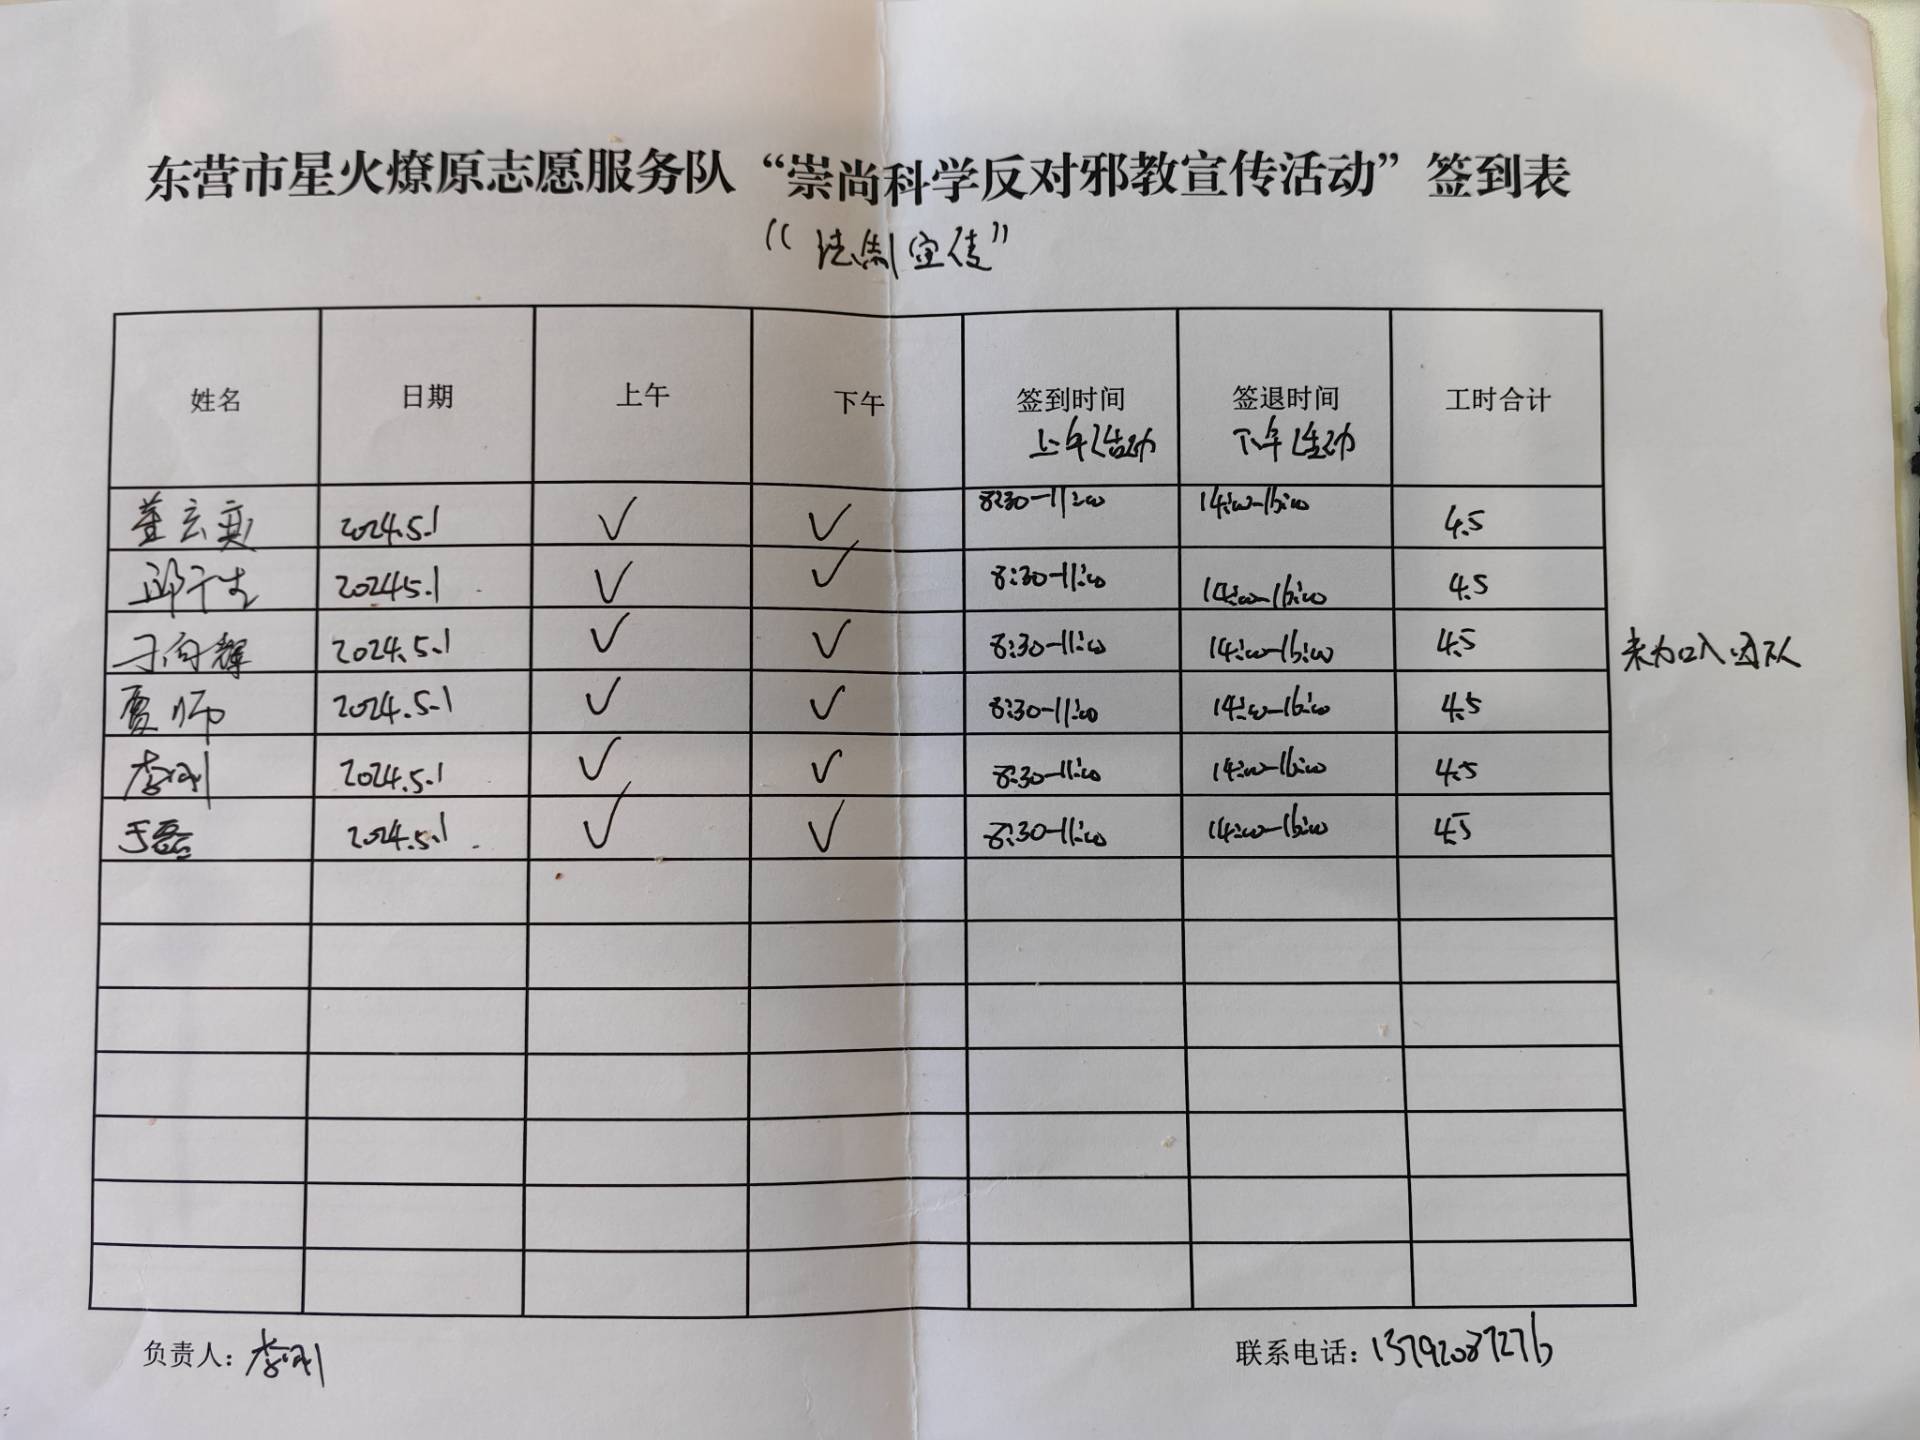 东营市星火燎原志愿服务队“崇尚科学反对邪教宣传活动”签到表
“法制宣传”
姓名 日期 上午 下午 签到时间 签退时间 工时合计
上午活动 下午活动
董云 2024.5.1 ✓ ✓ 8:30-11:00 14:00-16:00 4.5
邱 2024.5.1 ✓ ✓ 8:30-11:00 14:00-16:00 4.5
于向辉 2024.5.1 ✓ ✓ 8:30-11:00 14:00-16:00 4.5 未加入团队
贾师 2024.5.1 ✓ ✓ 8:30-11:00 14:00-16:00 4.5
李刚 2024.5.1 ✓ ✓ 8:30-11:00 14:00-16:00 4.5
于磊 2024.5.1 ✓ ✓ 8:30-11:00 14:00-16:00 4.5
负责人：李刚 联系电话：13792087276